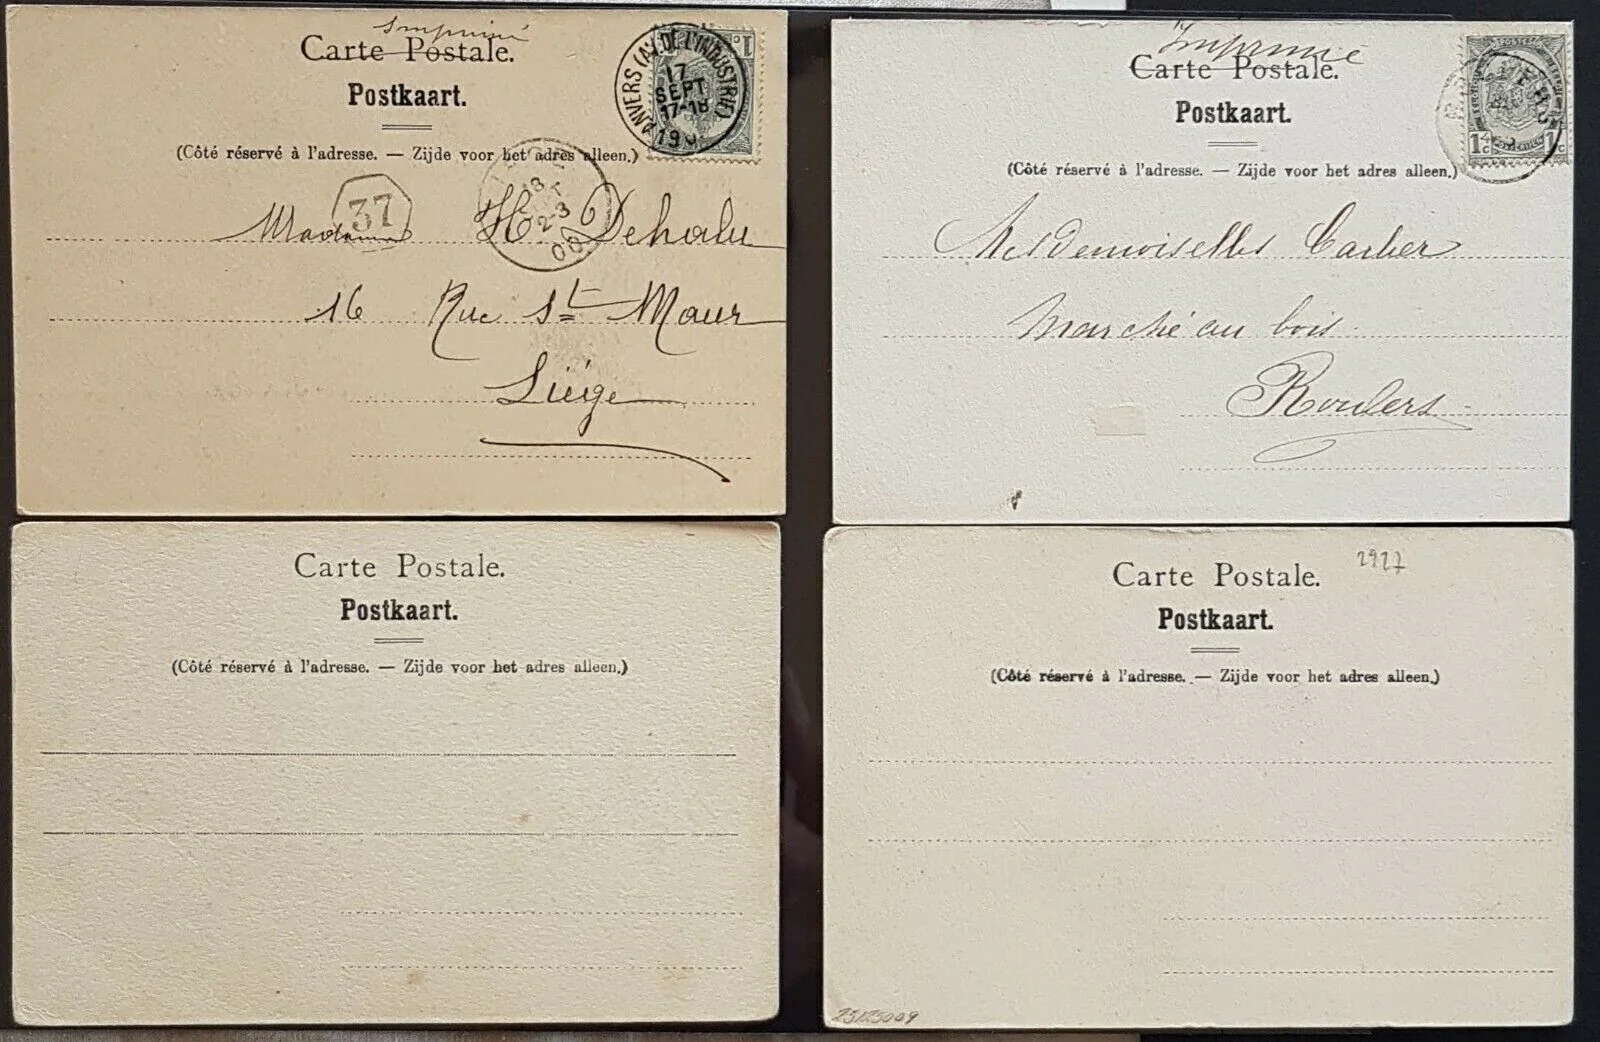 Imprimé
Carte Postale.
Postkaart.
(Côté réservé à l'adresse. — Zijde voor het adres alleen.)
ANVERS (AV. DE L'INDUSTRIE)
17
SEPT
17-18
1 c
37
18
2-3
00
Madame H. Dehalu
16 Rue St Maur
Liége
Imprimé
Carte Postale.
Postkaart.
(Côté réservé à l'adresse. — Zijde voor het adres alleen.)
POSTES
1 c 1 c
Mesdemoiselles Carlier
Marché au bois
Roulers
Carte Postale.
Postkaart.
(Côté réservé à l'adresse. — Zijde voor het adres alleen.)
2927
Carte Postale.
Postkaart.
(Côté réservé à l'adresse. — Zijde voor het adres alleen.)